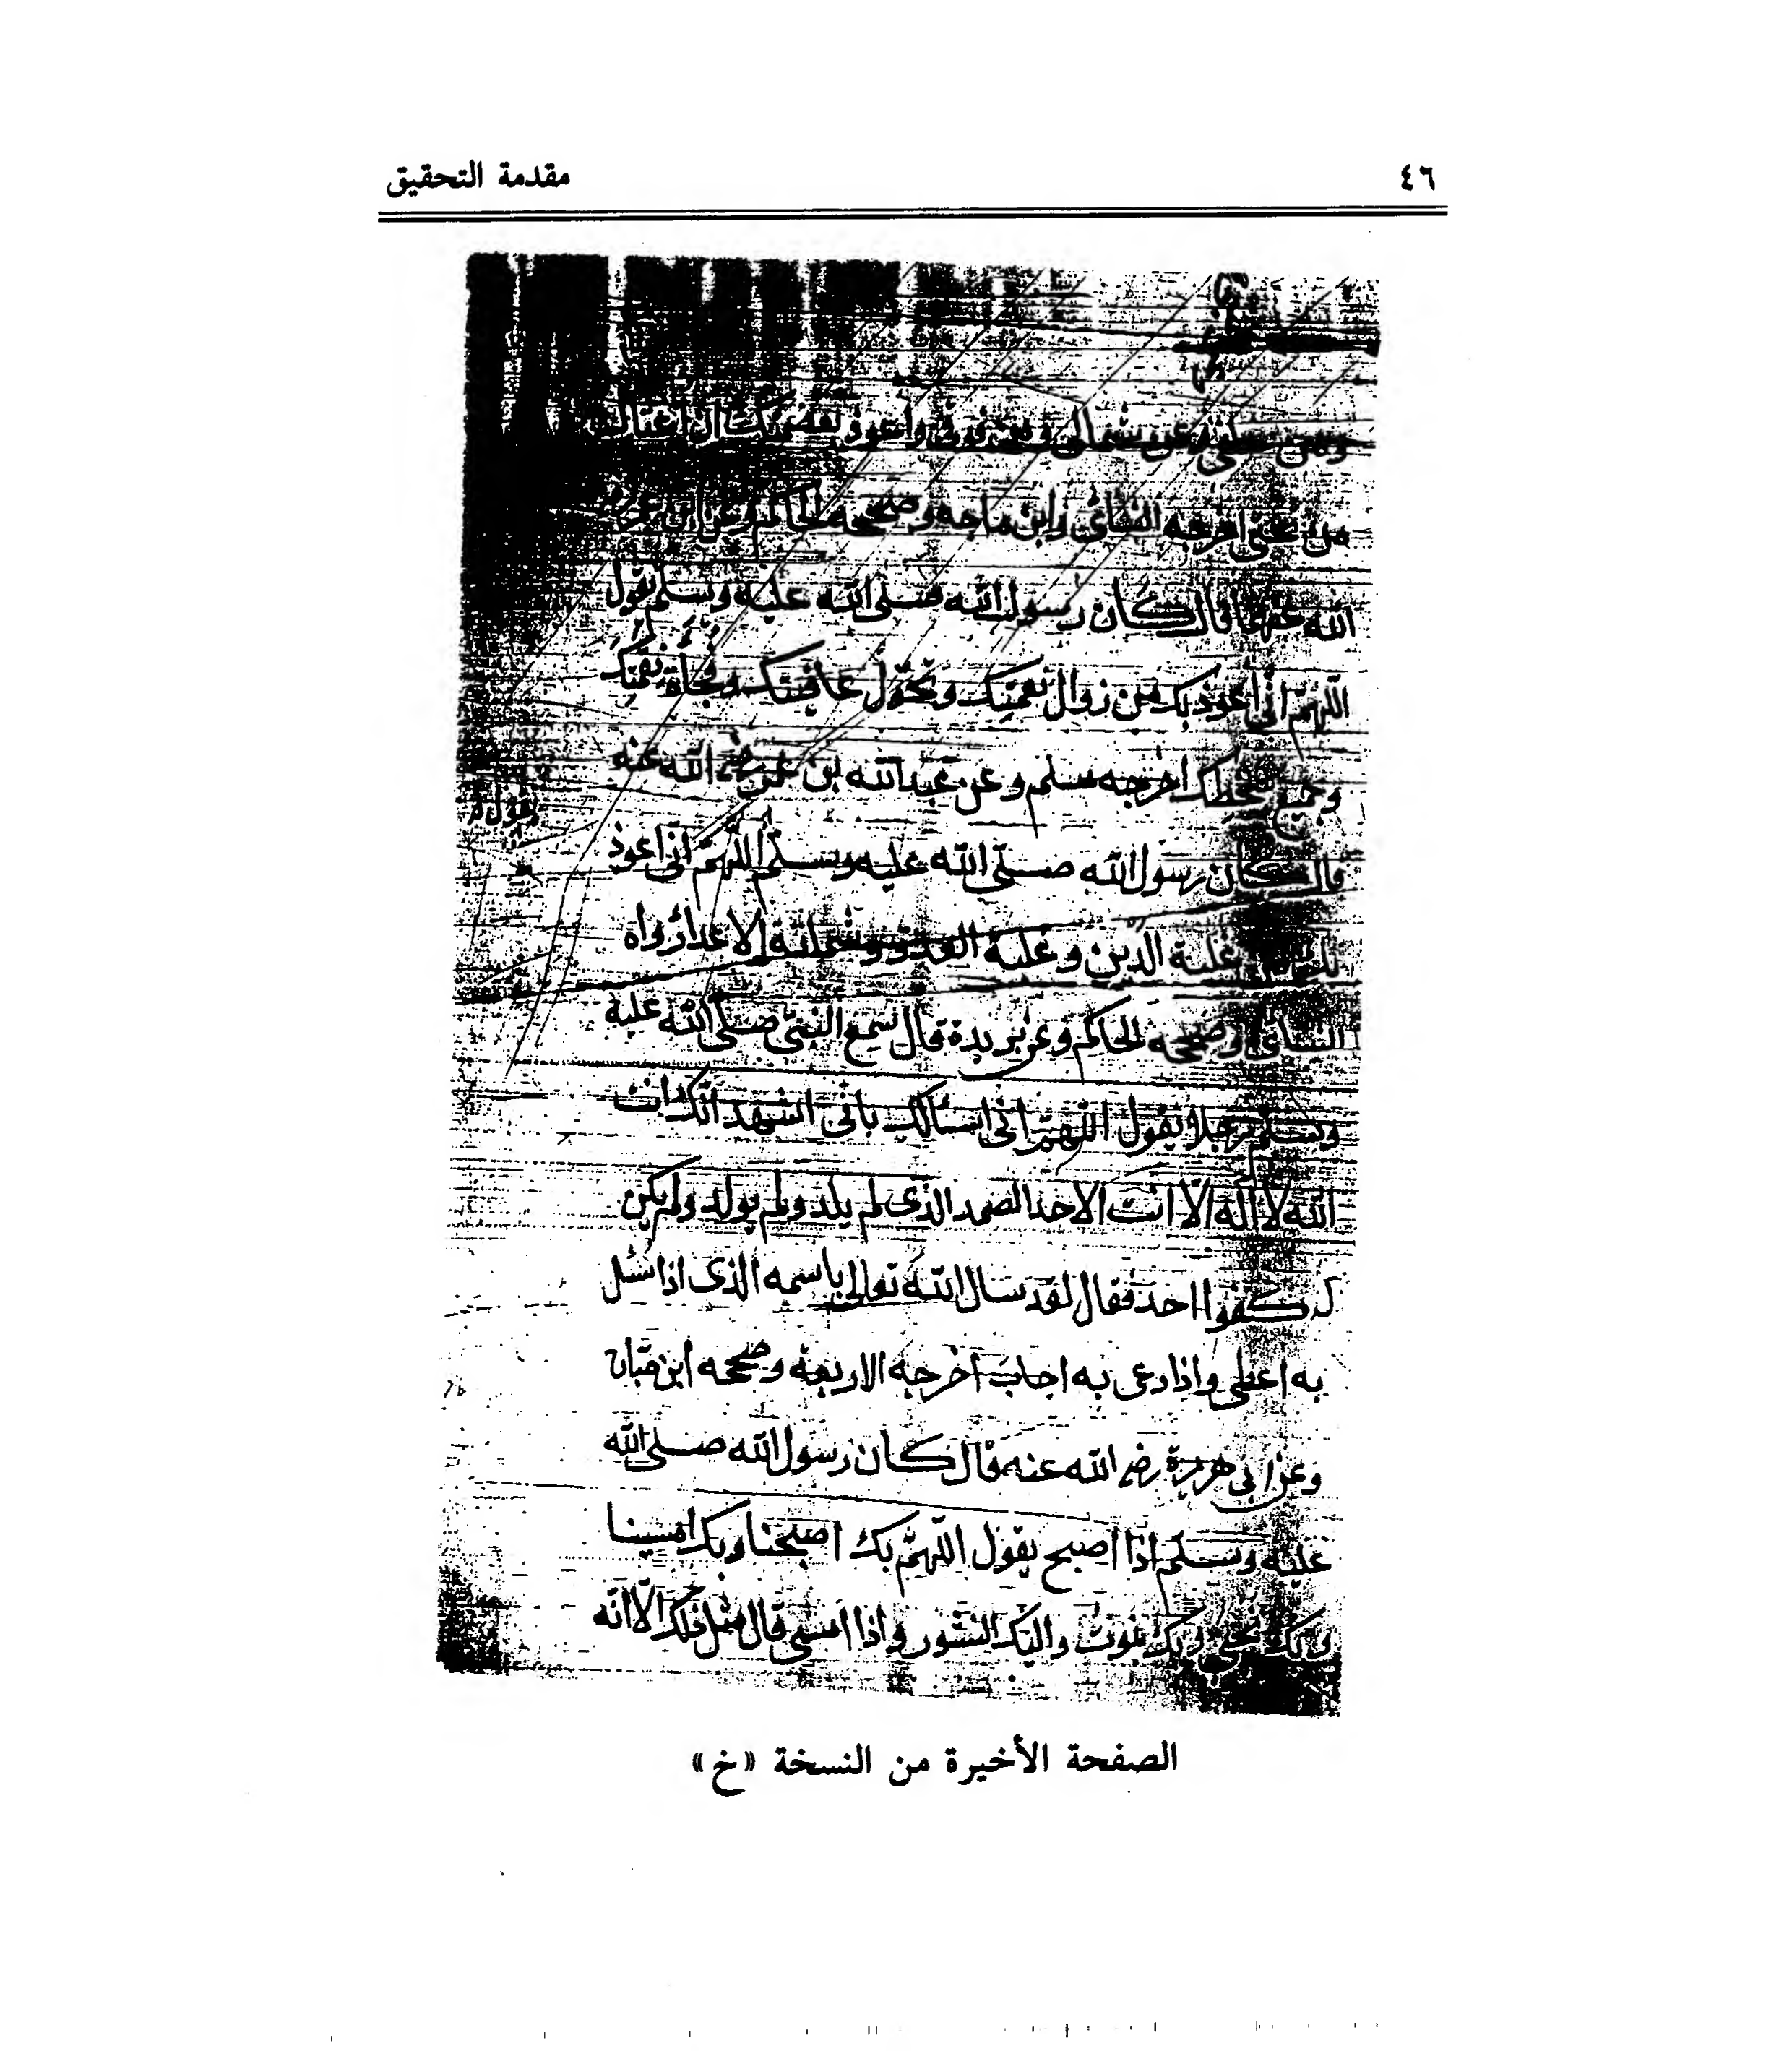 ٤٦
مقدمة التحقيق
ومن خلفي وعن شمالي ومن فوقي وأعوذ بعضمتك ان اغتال
من تحتي اخرجه النسائي وابن ماجه وصححه الحاكم وعن ابن عمر
الله عنهما قال كان رسول الله صلى الله عليه وسلم يقول
اللهم اني اعوذ بك من زوال نعمتك وتحوّل عافيتك وفجأة نقمتك
وجميع سخطك اخرجه مسلم وعن عبد الله بن عمر رضى الله عنه
قال كان رسول الله صلى الله عليه وسلم اللهم انى اعوذ
يقول
بك غلبة الدين وغلبة العدو وشماتة الاعداء رواه
النسائى وصححه الحاكم وعن بريدة قال سمع النبى صلى الله عليه
وسلم رجلا يقول اللهم انى اسئالك بانى اشهد انك انت
الله لا اله الا انت الاحد الصمد الذى لم يلد ولم يولد ولم يكن
له كفوا احد فقال لقد سال الله تعالى باسمه الذى اذا سئل
به اعطى واذا دعى به اجاب اخرجه الاربعة وصححه ابن حبان
وعن ابى هريرة رضى الله عنه قال كان رسول الله صلى الله
عليه وسلم اذا اصبح يقول اللهم بك اصبحنا وبك امسينا
وبك نحيى وبك نموت واليك النشور واذا امسى قال مثل ذلك الا انه
الصفحة الأخيرة من النسخة «خ»